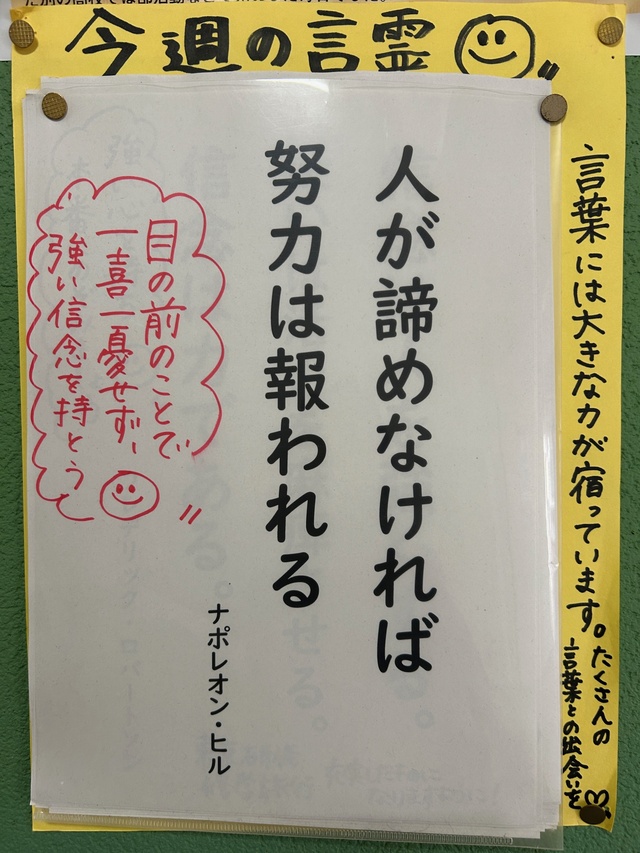 今週の言霊
人が諦めなければ
努力は報われる
ナポレオン・ヒル
目の前のことで
一喜一憂せず、
強い信念を持とう
言葉には大きな力が宿っています。
たくさんの
言葉との出会いを♡